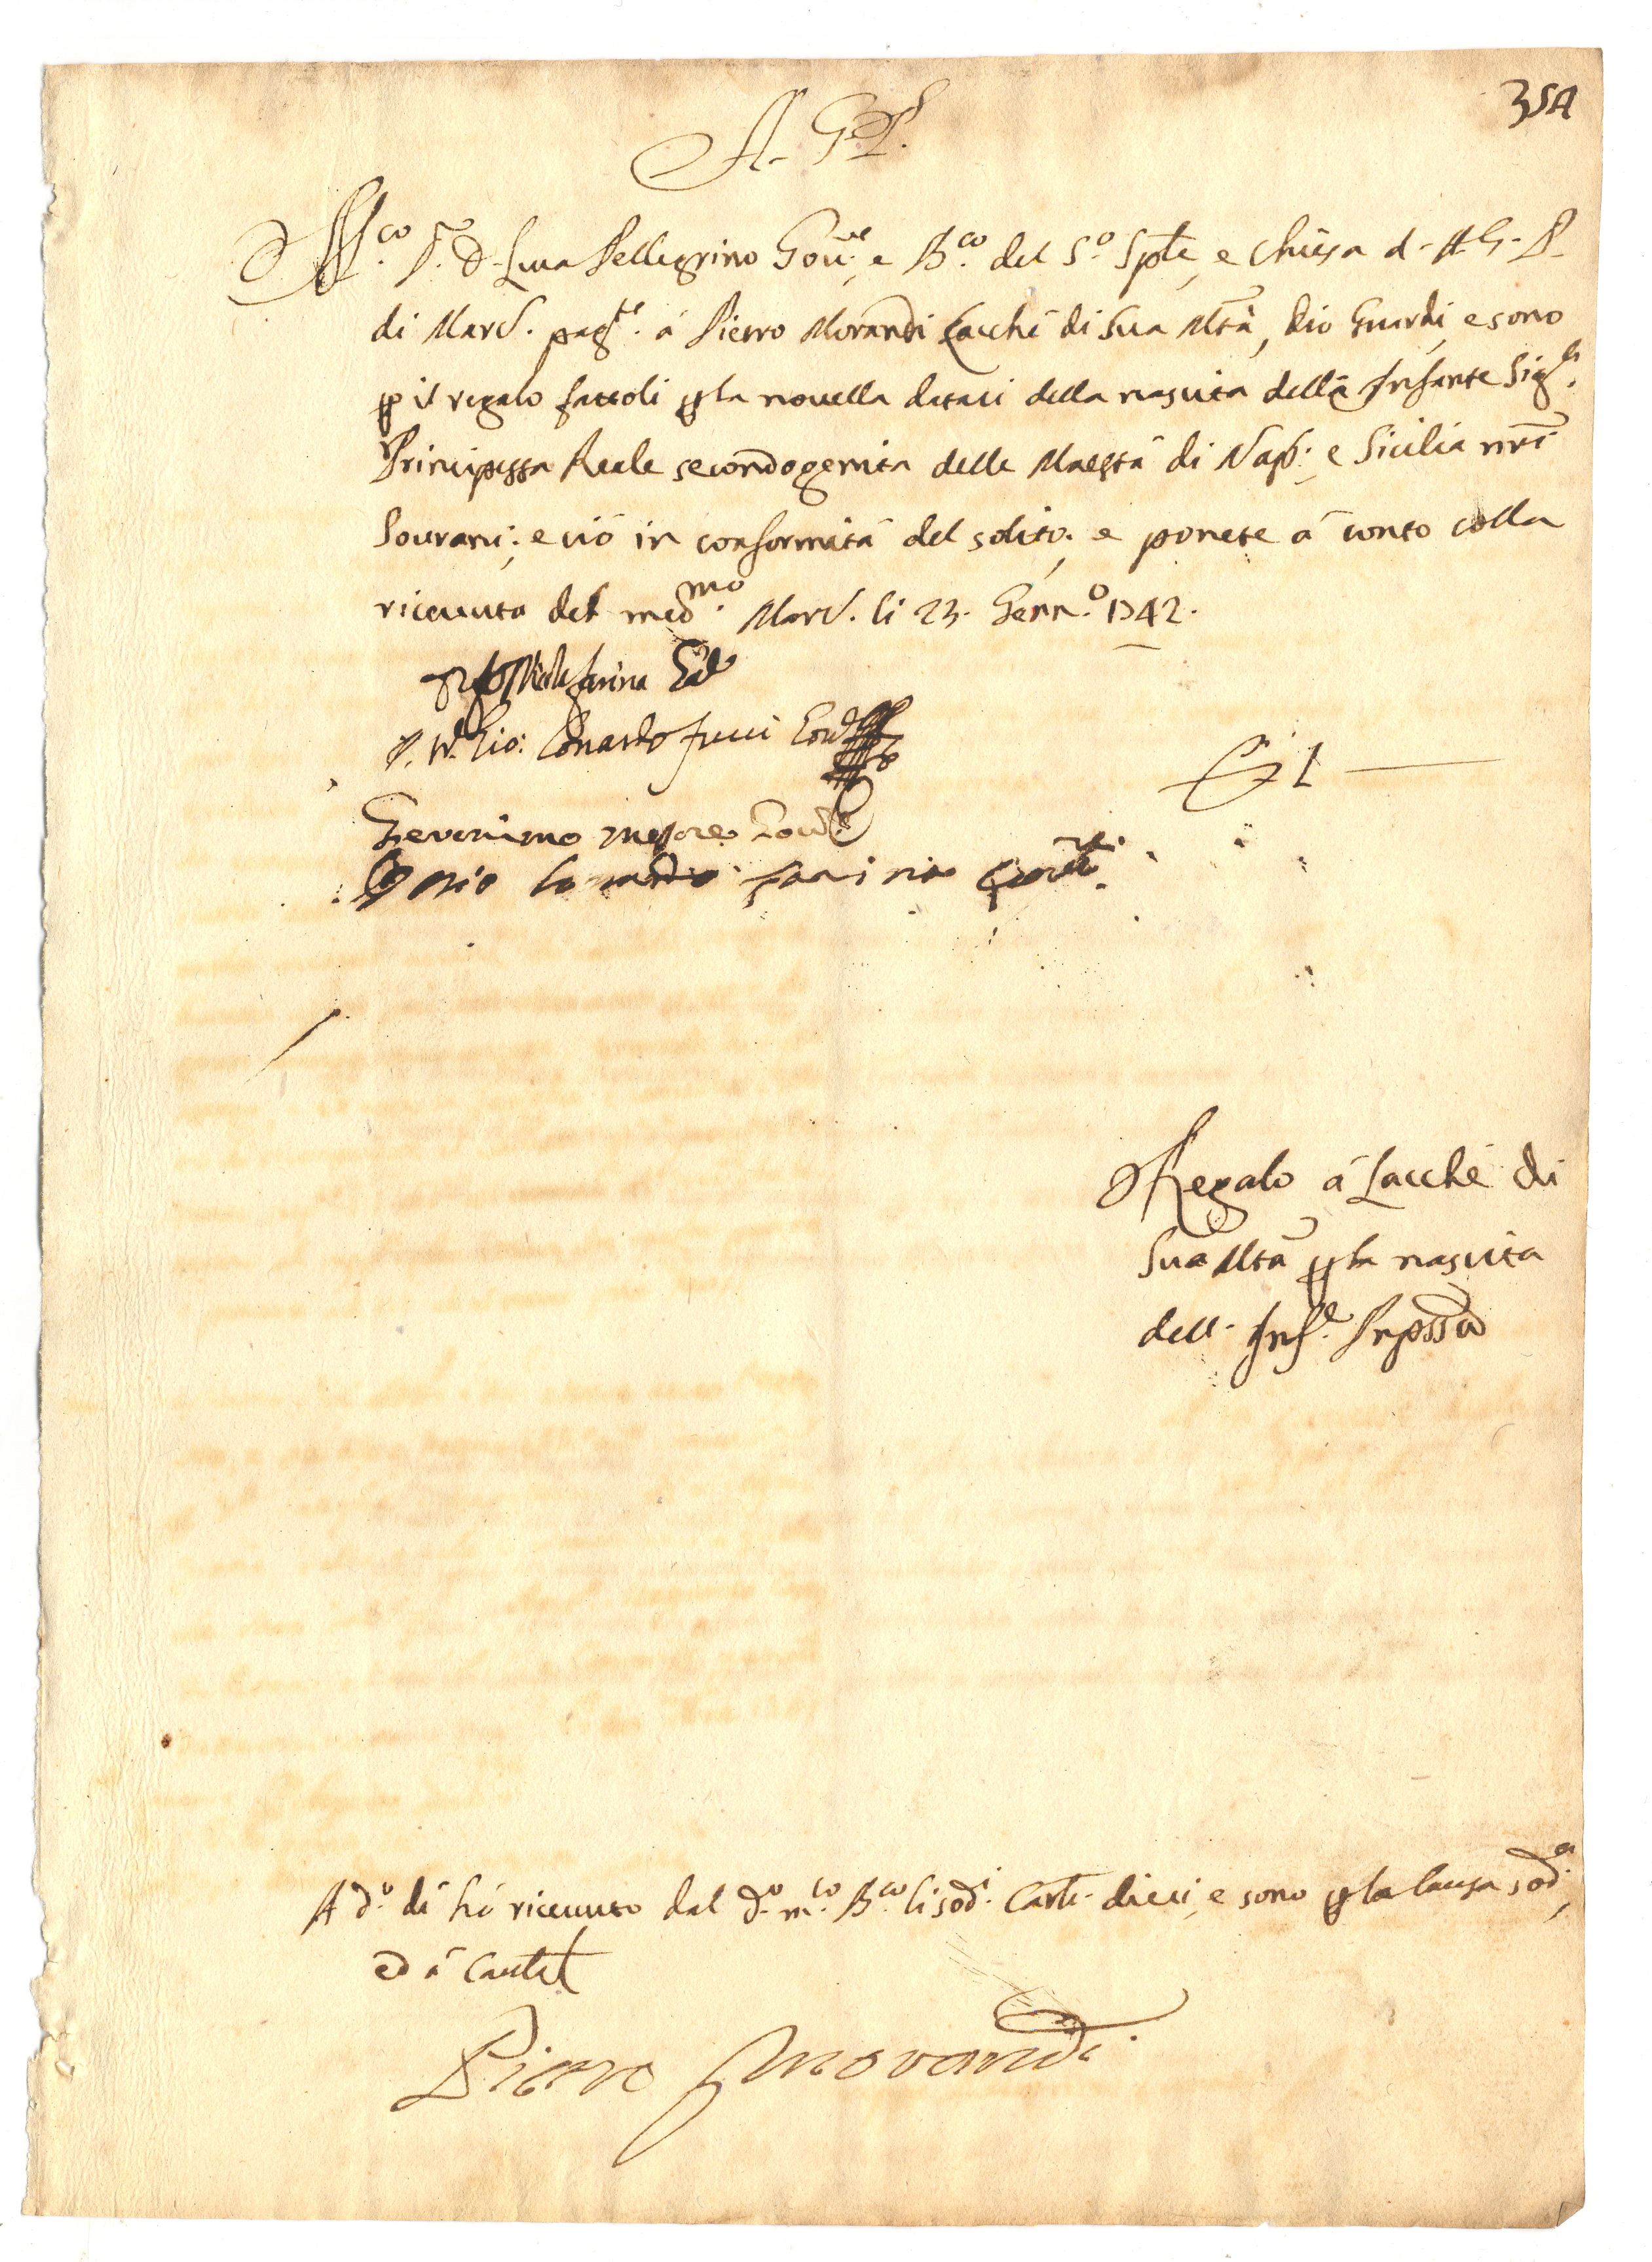 354
A. G. P.
M.co S.r D. Luca Pellegrino Gov.re, e B.co del S.o Sple, e Chiesa d. A. G. P.
di Mard. pag.te á Pietro Morandi Lacchè di Sua Mtà, Dio Guardi, e sono
p il regalo fattoli p la novella dataci della nascita della Infante Sig.ra
Principessa Reale secondogenita delle Maestà di Nap: e Sicilia nri
Sovrani; e ció in conformitá del solito; e ponete á conto colla
ricevuta del med.mo Mard. li 23. Genn.o 1742.
farina
Gio: Lonardo fucci Gov
Geronimo Gov
Lonardo farina
1
Regalo á Lacchè di
Sua Mtà p la nascita
dell. Inf.e Prpssa
A d.o dì hó ricevuto dal d.o m.co B.co li sod.i Carli. dieci, e sono p la causa sod.a,
ed á Cautel
Pietro Morandi